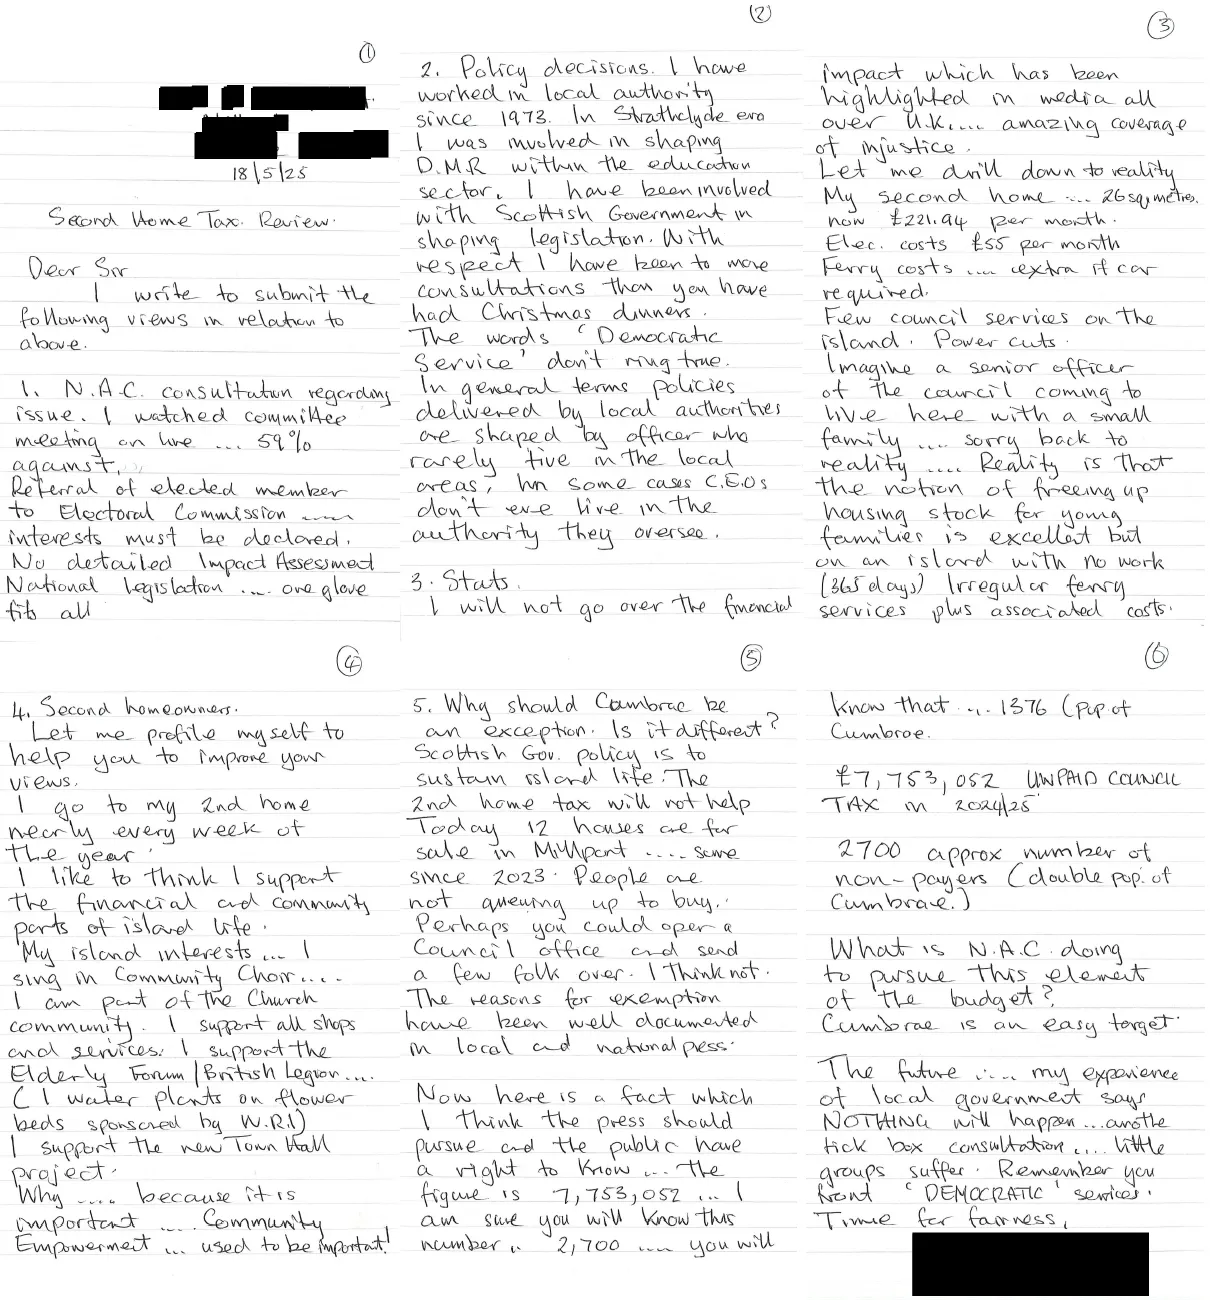 ①
18/5/25
Second Home Tax. Review.
Dear Sir
I write to submit the
following views in relation to
above.
1. N.A.C. consultation regarding
issue. I watched committee
meeting on line ... 59%
against.
Referral of elected member
to Electoral Commission .....
interests must be declared.
No detailed Impact Assessment
National legislation .... one glove
fits all
②
2. Policy decisions. I have
worked in local authority
since 1973. In Strathclyde era
I was involved in shaping
D.M.R within the education
sector. I have been involved
with Scottish Government in
shaping legislation. With
respect I have been to more
consultations than you have
had Christmas dinners.
The words 'Democratic
Service' don't ring true.
In general terms policies
delivered by local authorities
are shaped by officer who
rarely live in the local
areas, In some cases C.E.Os
don't eve live in the
authority they oversee.
3. Stats.
I will not go over the financial
③
impact which has been
highlighted in media all
over U.K.... amazing coverage
of injustice.
Let me drill down to reality
My second home .... 26 sq metres.
now £221.94 per month.
Elec. costs £55 per month
Ferry costs .... extra if car
required.
Few council services on the
island. Power cuts.
Imagine a senior officer
of the council coming to
live here with a small
family .... sorry back to
reality .... Reality is that
the notion of freeing up
housing stock for young
families is excellent but
on an island with no work
(365 days) Irregular ferry
services plus associated costs.
④
4. Second homeowners.
Let me profile myself to
help you to improve your
views.
I go to my 2nd home
nearly every week of
the year.
I like to think I support
the financial and community
parts of island life.
My island interests ... I
sing in Community Choir....
I am part of the Church
community. I support all shops
and services. I support the
Elderly Forum/British Legion....
( I water plants on flower
beds sponsored by W.R.I)
I support the new Town Hall
project.
Why .... because it is
important .... Community
Empowerment ... used to be important!
⑤
5. Why should Cumbrae be
an exception. Is it different?
Scottish Gov. policy is to
sustain island life. The
2nd home tax will not help
Today 12 houses are for
sale in Millport .... some
since 2023. People are
not queuing up to buy.
Perhaps you could open a
Council office and send
a few folk over. I think not.
The reasons for exemption
have been well documented
in local and national press.
Now here is a fact which
I think the press should
pursue and the public have
a right to know ... the
figure is 7,753,052 ... I
am sure you will know this
number .. 2,700 .... you will
⑥
know that ... 1376 (pop. of
Cumbrae.
£7,753,052 UNPAID COUNCIL
TAX in 2024/25
2700 approx number of
non-payers (double pop. of
Cumbrae.)
What is N.A.C. doing
to pursue this element
of the budget?
Cumbrae is an easy target.
The future .... my experience
of local government says
NOTHING will happen ... anothe
tick box consultation .... little
groups suffer. Remember you
front 'DEMOCRATIC' services.
Time for fairness,